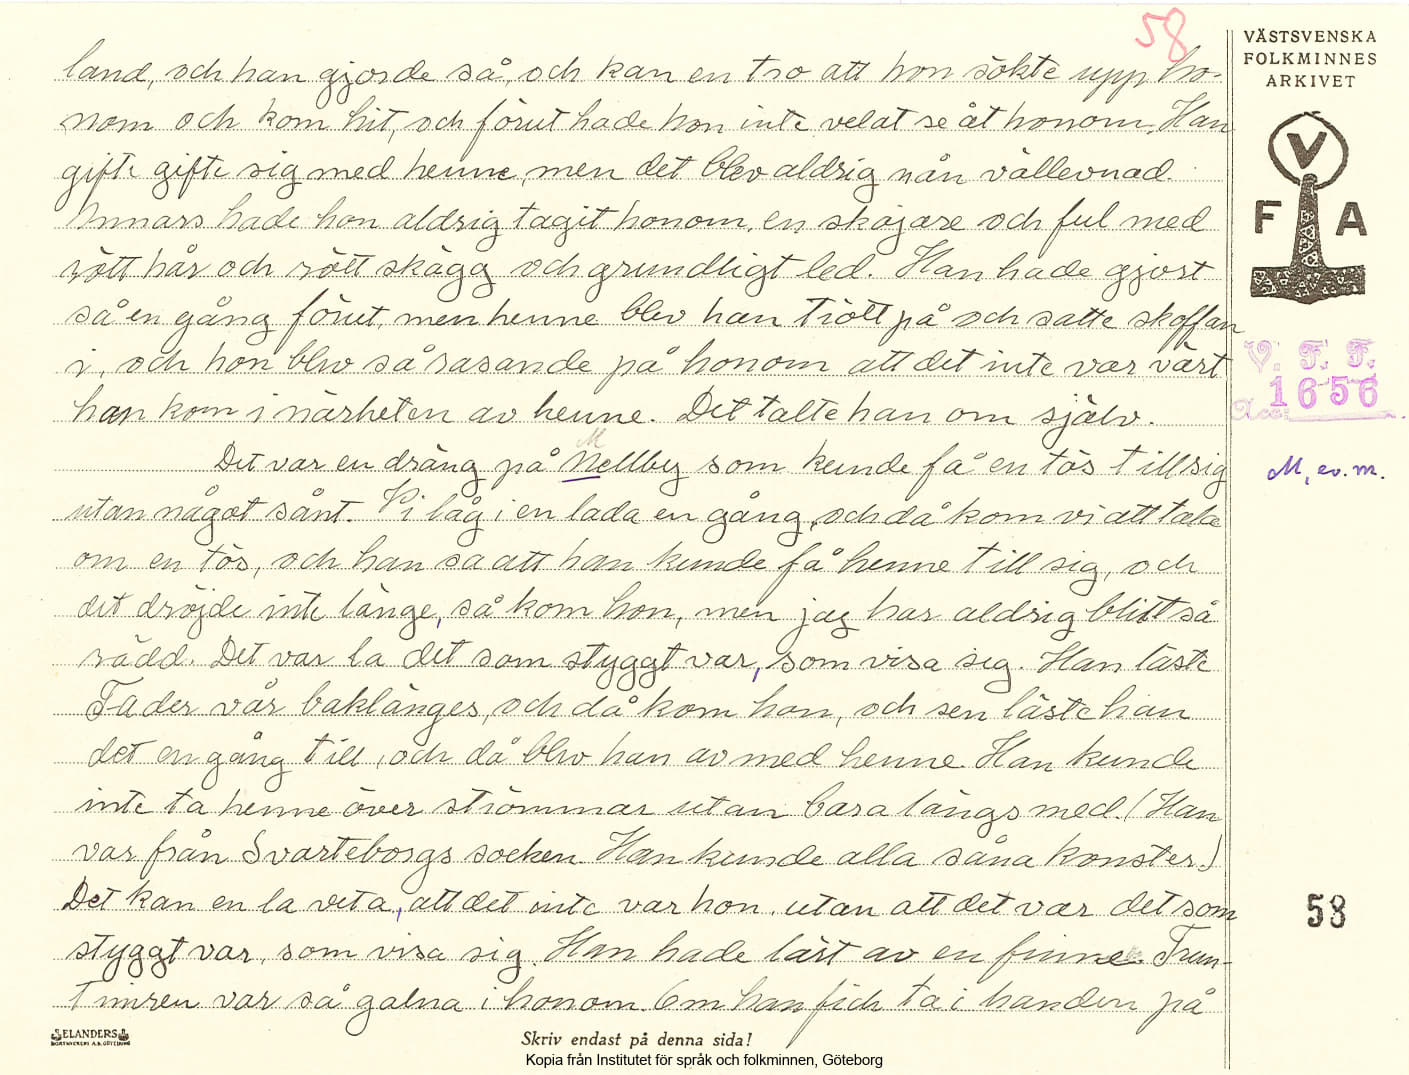 58
VÄSTSVENSKA
FOLKMINNES
ARKIVET
V
F A
V. F. F.
1656
Acc:
M, ev. m.
land, och han gjorde så, och kan en tro att hon sökte upp ho-
nom och kom hit, och förut hade hon inte velat se åt honom. Han
gifte gifte sig med henne, men det blev aldrig nån vällevnad.
Annars hade hon aldrig tagit honom, en skojare och ful med
rött hår och rött skägg och grundligt led. Han hade gjort
så en gång förut, men henne blev han trött på och satte skoffan
i, och hon blev så rasande på honom att det inte var värt
han kom i närheten av henne. Det talte han om själv.
Det var en dräng på Mellby som kunde få en tös till sig
utan något sånt. Vi låg i en lada en gång, och då kom vi att tala
om en tös, och han sa att han kunde få henne till sig, och
det dröjde inte länge, så kom hon, men jag har aldrig blitt så
rädd. Det var la det som styggt var, som visa sig. Han läste
Fader vår baklänges, och då kom hon, och sen läste han
det en gång till, och då blev han av med henne. Han kunde
inte ta henne över strömmar utan bara längs med. (Han
var från Svarteborgs socken. Han kunde alla såna konster.)
Det kan en la veta, att det inte var hon, utan att det var det som
styggt var, som visa sig. Han hade lärt av en finne. Frun-
timren var så galna i honom. Om han fick ta i handen på
58
ELANDERS
BOKTRYCKERI A.B. GÖTEBORG
Skriv endast på denna sida!
Kopia från Institutet för språk och folkminnen, Göteborg